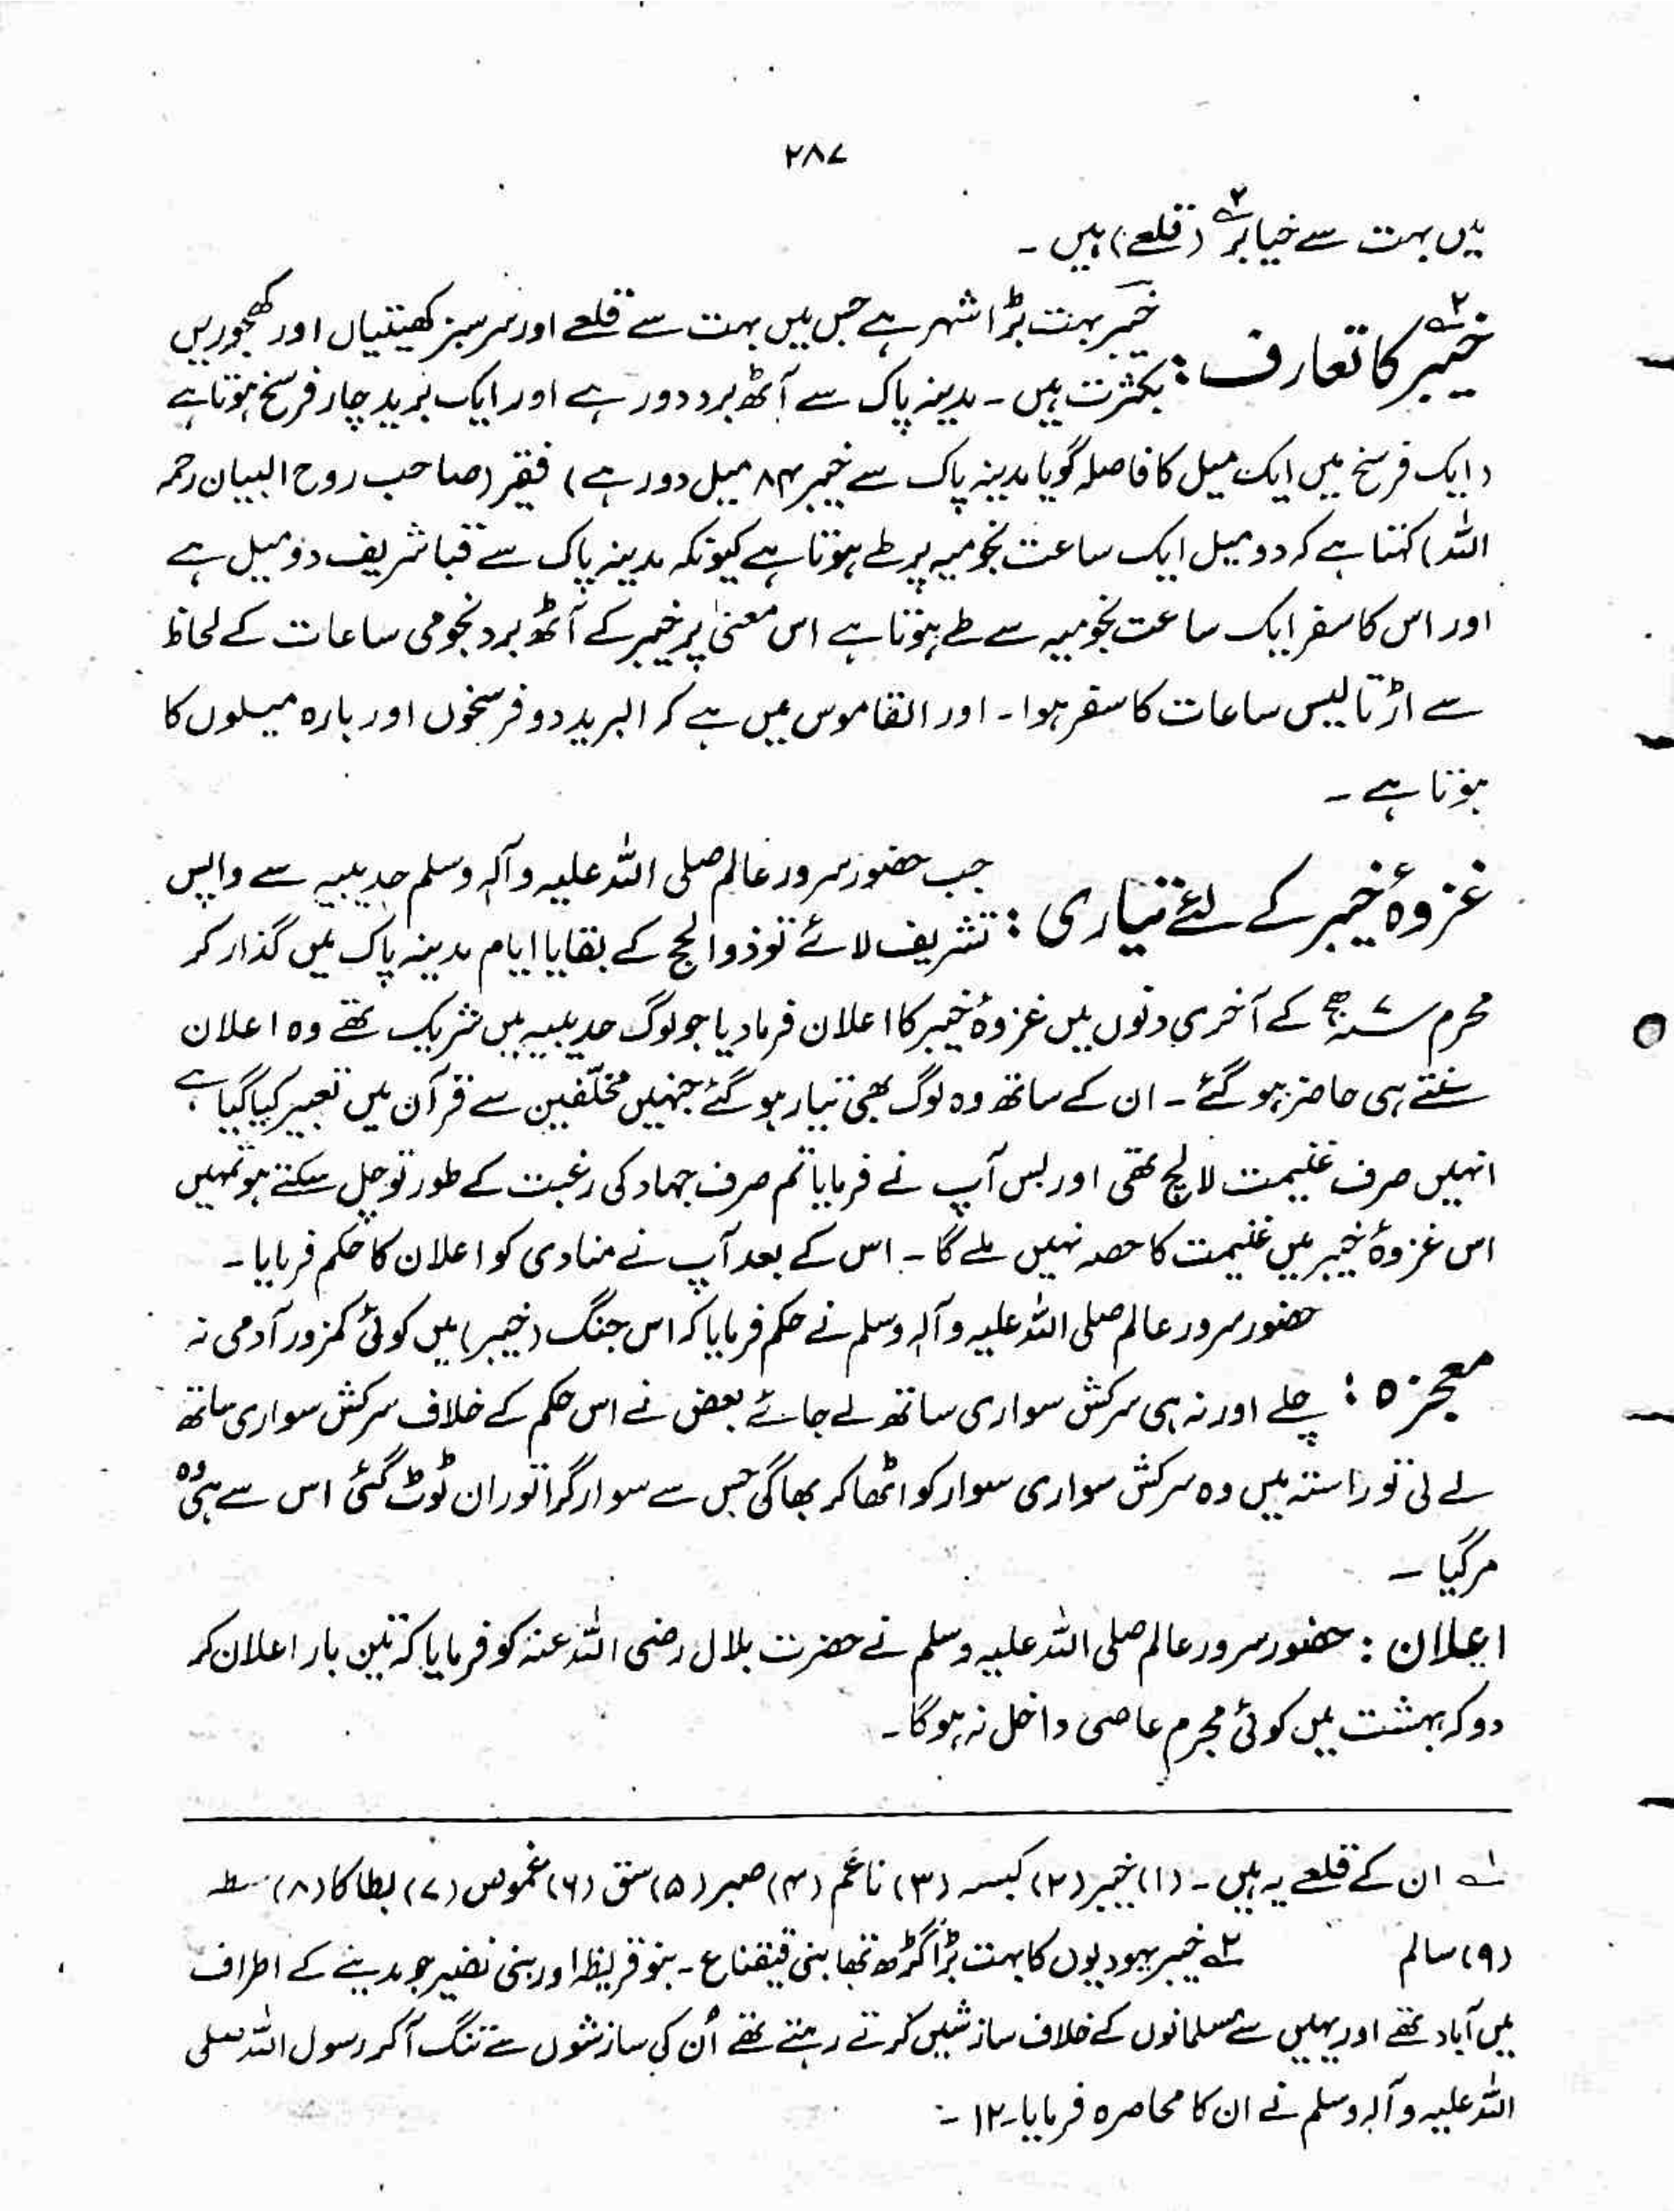 ۲۸۷
میں بہت سے خیابر۲؎ (قلعے) ہیں ۔
خیبر۲؎ کا تعارف : خیبر بہت بڑا شہر ہے جس میں بہت سے قلعے اور سرسبز کھیتیاں اور کھجوریں
بکثرت ہیں ۔ مدینہ پاک سے آٹھ برد دور ہے اور ایک برید چار فرسخ ہوتا ہے
(ایک فرسخ میں ایک میل کا فاصلہ گویا مدینہ پاک سے خیبر ۸۴ میل دور ہے) فقیر (صاحب روح البیان رحمہ
اللہ) کہتا ہے کہ دو میل ایک ساعت نجومیہ پر طے ہوتا ہے کیونکہ مدینہ پاک سے قبا شریف دو میل ہے
اور اس کا سفر ایک ساعت نجومیہ سے طے ہوتا ہے اس معنیٰ پر خیبر کے آٹھ برد نجومی ساعات کے لحاظ
سے اڑتالیس ساعات کا سفر ہوا ۔ اور القاموس میں ہے کہ البرید دو فرسخوں اور بارہ میلوں کا
ہوتا ہے ۔
غزوۂ خیبر کے لئے تیاری : جب حضور سرور عالم صلی اللہ علیہ وآلہ وسلم حدیبیہ سے واپس
تشریف لائے تو ذوالحج کے بقایا ایام مدینہ پاک میں گذار کر
محرم ۷ھ کے آخری دنوں میں غزوۂ خیبر کا اعلان فرما دیا جو لوگ حدیبیہ میں شریک تھے وہ اعلان
سنتے ہی حاضر ہو گئے ۔ ان کے ساتھ وہ لوگ بھی تیار ہو گئے جنہیں مخلّفین سے قرآن میں تعبیر کیا گیا ہے
انہیں صرف غنیمت لالچ تھی اور بس آپ نے فرمایا تم صرف جہاد کی رغبت کے طور تو چل سکتے ہو تمہیں
اس غزوۂ خیبر میں غنیمت کا حصہ نہیں ملے گا ۔ اس کے بعد آپ نے منادی کو اعلان کا حکم فرمایا ۔
حضور سرور عالم صلی اللہ علیہ وآلہ وسلم نے حکم فرمایا کہ اس جنگ (خیبر) میں کوئی کمزور آدمی نہ
معجزہ : چلے اور نہ ہی سرکش سواری ساتھ لے جائے بعض نے اس حکم کے خلاف سرکش سواری ساتھ
لے لی تو راستہ میں وہ سرکش سواری سوار کو اٹھا کر بھاگی جس سے سوار گرا تو ران ٹوٹ گئی اس سے ہی وہ
مر گیا ۔
اعلان : حضور سرور عالم صلی اللہ علیہ وسلم نے حضرت بلال رضی اللہ عنہ کو فرمایا کہ تین بار اعلان کر
دو کہ بہشت میں کوئی مجرم عاصی داخل نہ ہو گا ۔
۱؎ ان کے قلعے یہ ہیں ۔ (۱) خیبر (۲) کیسہ (۳) ناعم (۴) صبر (۵) سق (۶) غموص (۷) بطاکا (۸) سط
(۹) سالم ۲؎ خیبر یہودیوں کا بہت بڑا گڑھ تھا بنی قینقاع ۔ بنو قریظہ اور بنی نضیر جو مدینے کے اطراف
میں آباد تھے اور یہیں سے مسلمانوں کے خلاف سازشیں کرتے رہتے تھے اُن کی سازشوں سے تنگ آ کر رسول اللہ صلی
اللہ علیہ وآلہ وسلم نے ان کا محاصرہ فرمایا۔ ۱۲ ۔